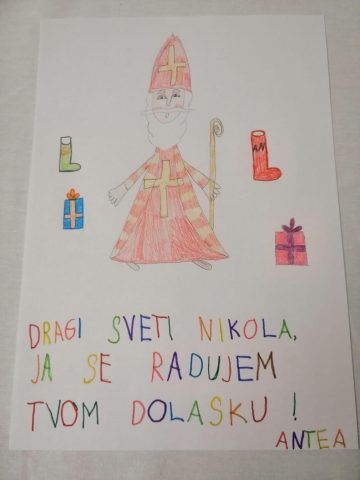 AN
DRAGI SVETI NIKOLA,
JA SE RADUJEM
TVOM DOLASKU !
ANTEA